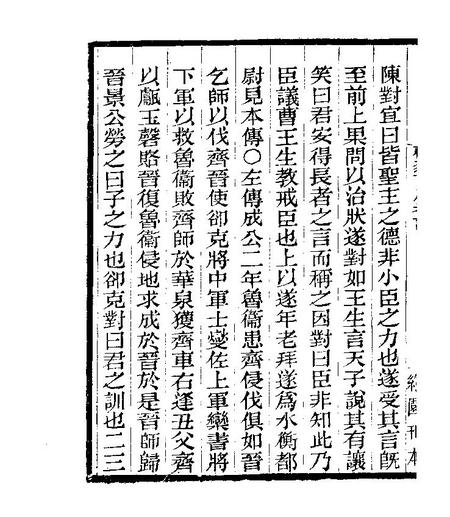 陳對宜曰皆聖王之德非小臣之力也遂受其言旣
至前上果問以治狀遂對如王生言天子說其有讓
笑曰君安得長者之言而稱之因對曰臣非知此乃
臣議曹王生教戒臣也上以遂年老拜遂爲水衡都
尉見本傳○左傳成公二年魯衞患齊侵伐俱如晉
乞師以伐齊晉使卻克將中軍士燮佐上軍欒書將
下軍以救魯衞敗齊師於華泉獲齊車右逢丑父齊
以甗玉磬賂晉復魯衞侵地求成於晉於是晉師歸
晉景公勞之曰子之力也卻克對曰君之訓也二三